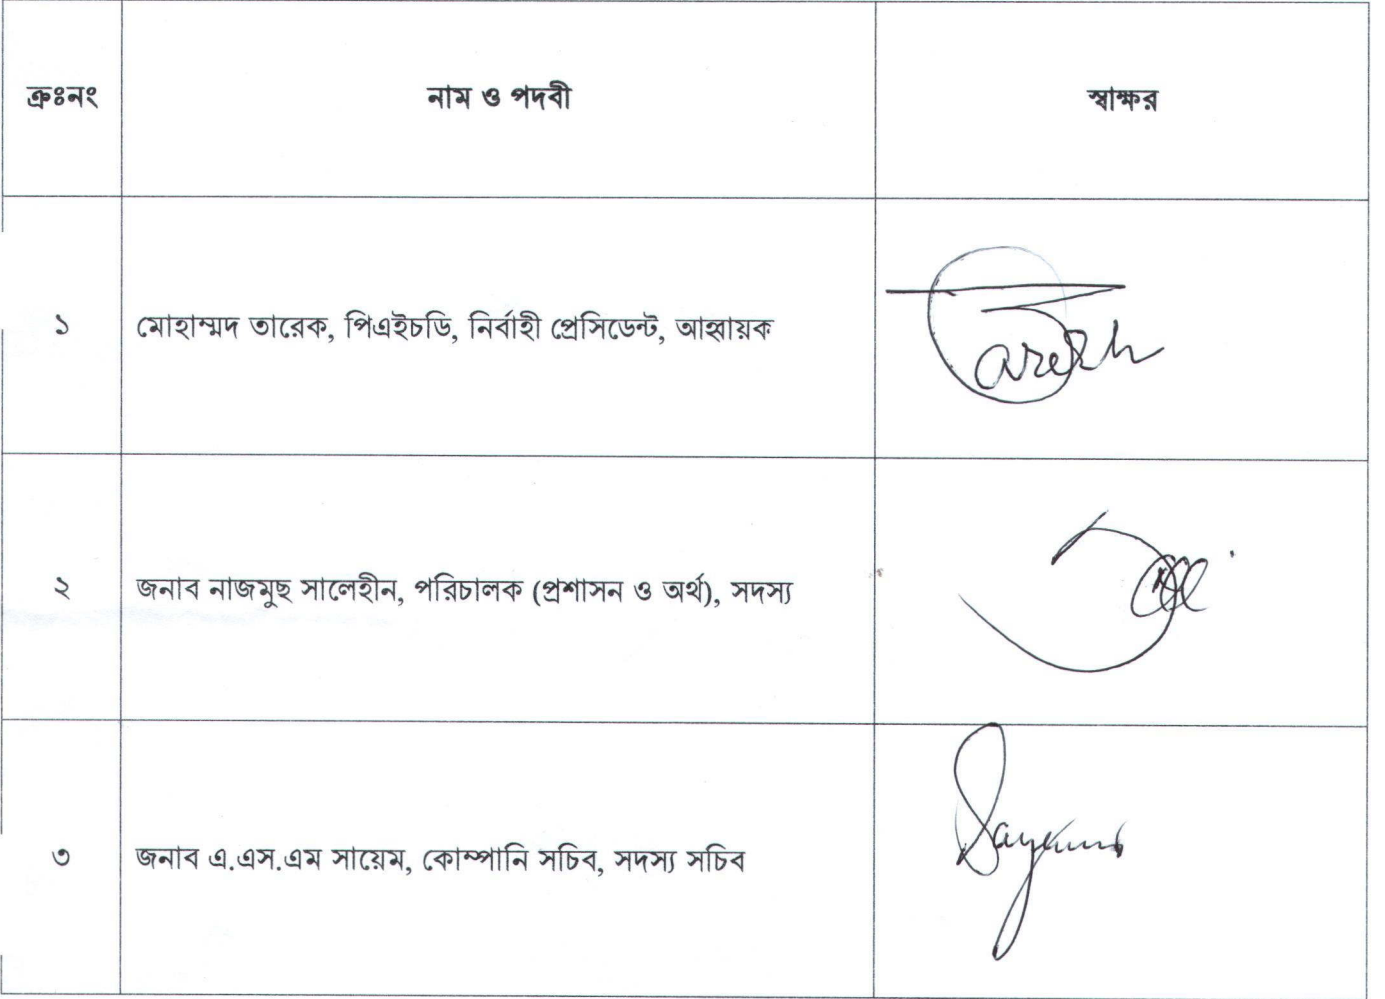 ক্রঃনং নাম ও পদবী স্বাক্ষর
১ মোহাম্মদ তারেক, পিএইচডি, নির্বাহী প্রেসিডেন্ট, আহ্বায়ক Tarekh
২ জনাব নাজমুছ সালেহীন, পরিচালক (প্রশাসন ও অর্থ), সদস্য
৩ জনাব এ.এস.এম সায়েম, কোম্পানি সচিব, সদস্য সচিব Sayem